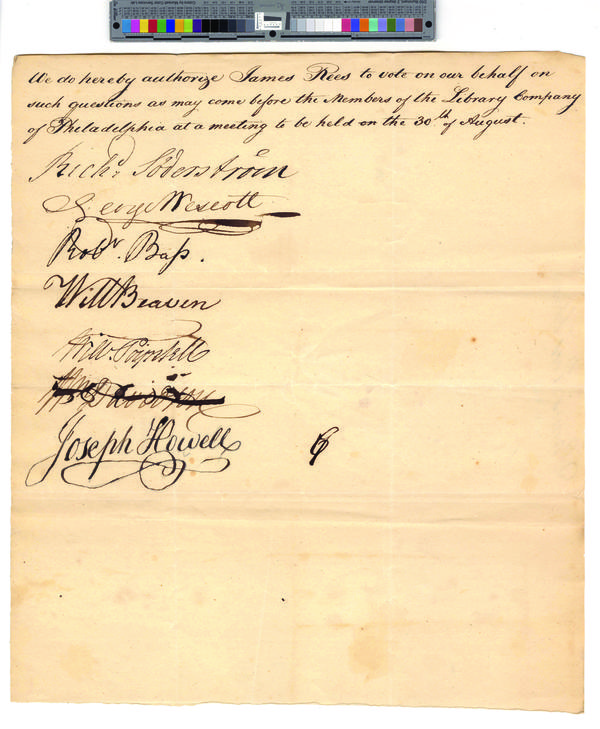 We do hereby authorize James Rees to vote on our behalf on
such questions as may come before the Members of the Library Company
of Philadelphia at a meeting to be held on the 30th of August.
Richd. Söderström
George Wescott
Robt. Bass.
Will Beaven
Willm. Poyntell
Joseph Howell
6